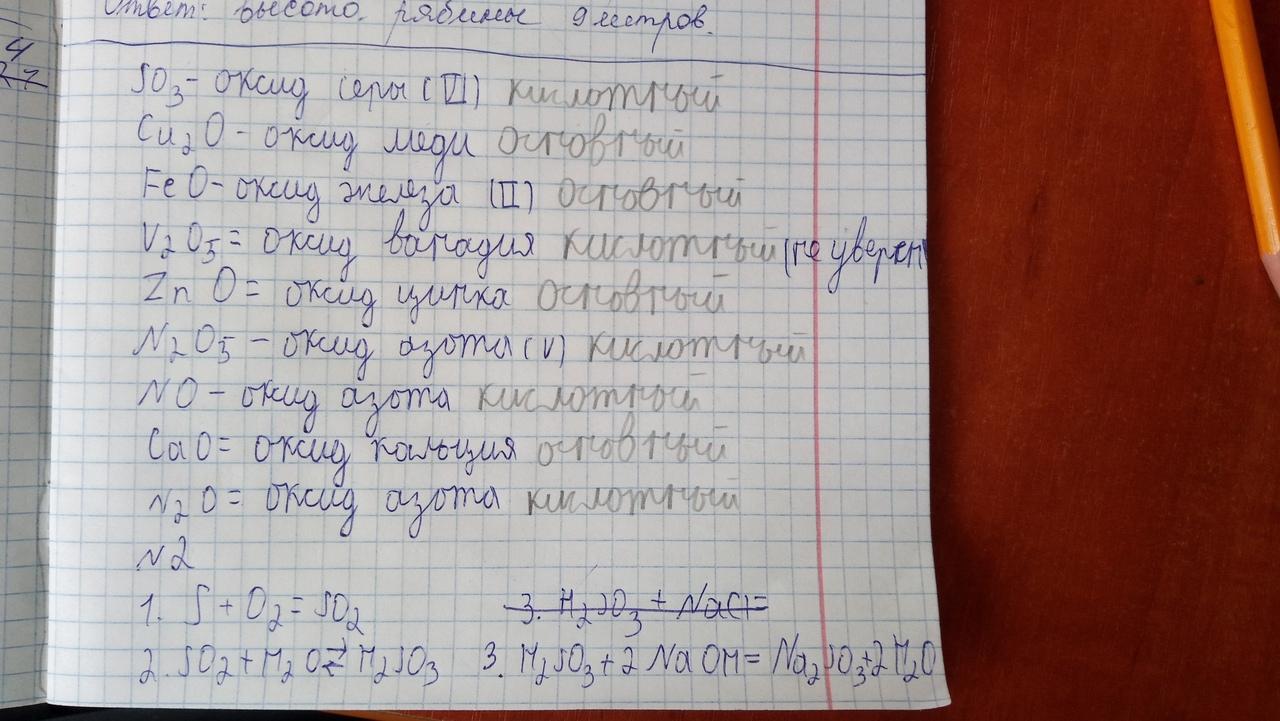 Ответ: высота рябины 9 метров.
4
27
SO3 - оксид серы (VI) кислотный
Cu2O - оксид меди основный
FeO - оксид железа (II) основный
V2O5 = оксид ванадия кислотный (не уверен
ZnO = оксид цинка основный
N2O5 - оксид азота (V) кислотный
NO - оксид азота кислотный
CaO = оксид кальция основный
N2O = оксид азота кислотный
N2
1. S + O2 = SO2 3. H2SO3 + NaCl =
2. SO2 + H2O ⇄ H2SO3 3. H2SO3 + 2NaOH = Na2SO3 + 2H2O